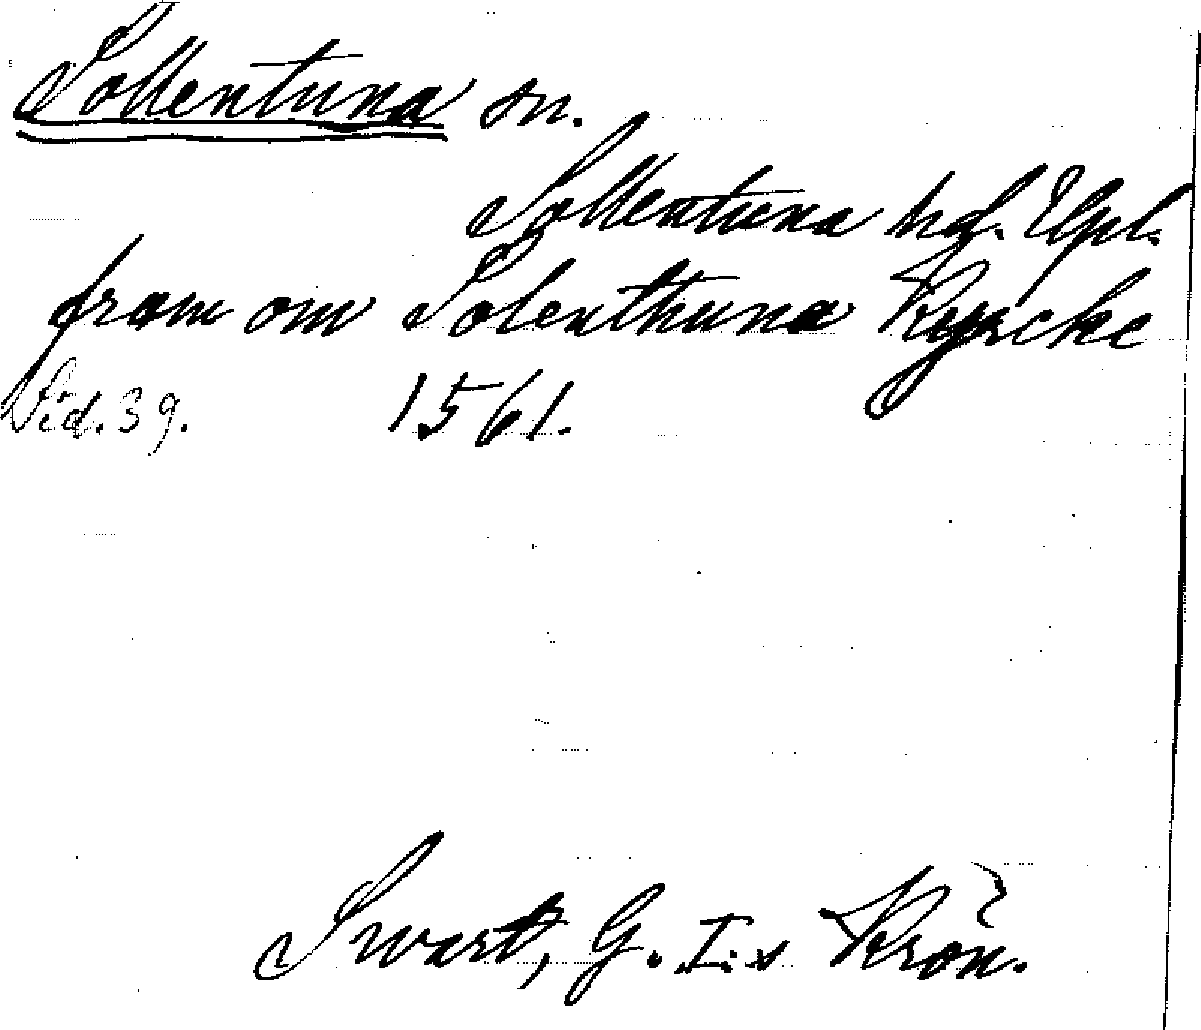 Sollentuna sn.
Sollentuna hd. Uppl.
fram om Solenthuna Kyrcke
Sid. 39. 1561.
Swart, G. I:s Krön.